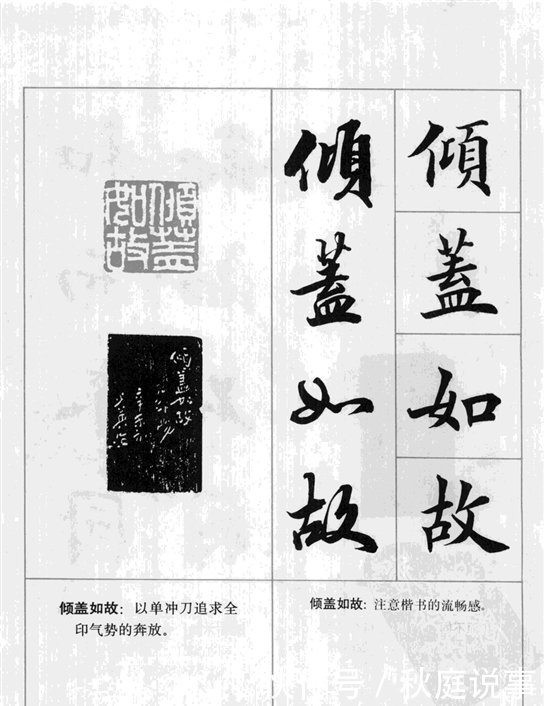 傾蓋如故
傾蓋如故
傾蓋如故
傾蓋如故
倾盖如故：以单冲刀追求全
印气势的奔放。
倾盖如故：注意楷书的流畅感。
号 / 秋庭说事